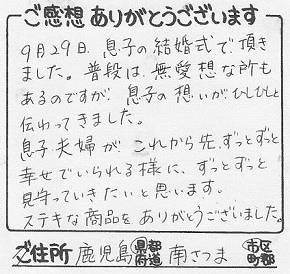 ご感想ありがとうございます
9月29日、息子の結婚式で頂き
ました。普段は、無愛想な所も
あるのですが、息子の想いがひしひしと
伝わってきました。
息子夫婦が、これから先、ずっとずっと
幸せでいられる様に、ずっとずっと
見守っていきたいと思います。
ステキな商品をありがとうございました。
ご住所 鹿児島 県都府道 南さつま 市区町郡